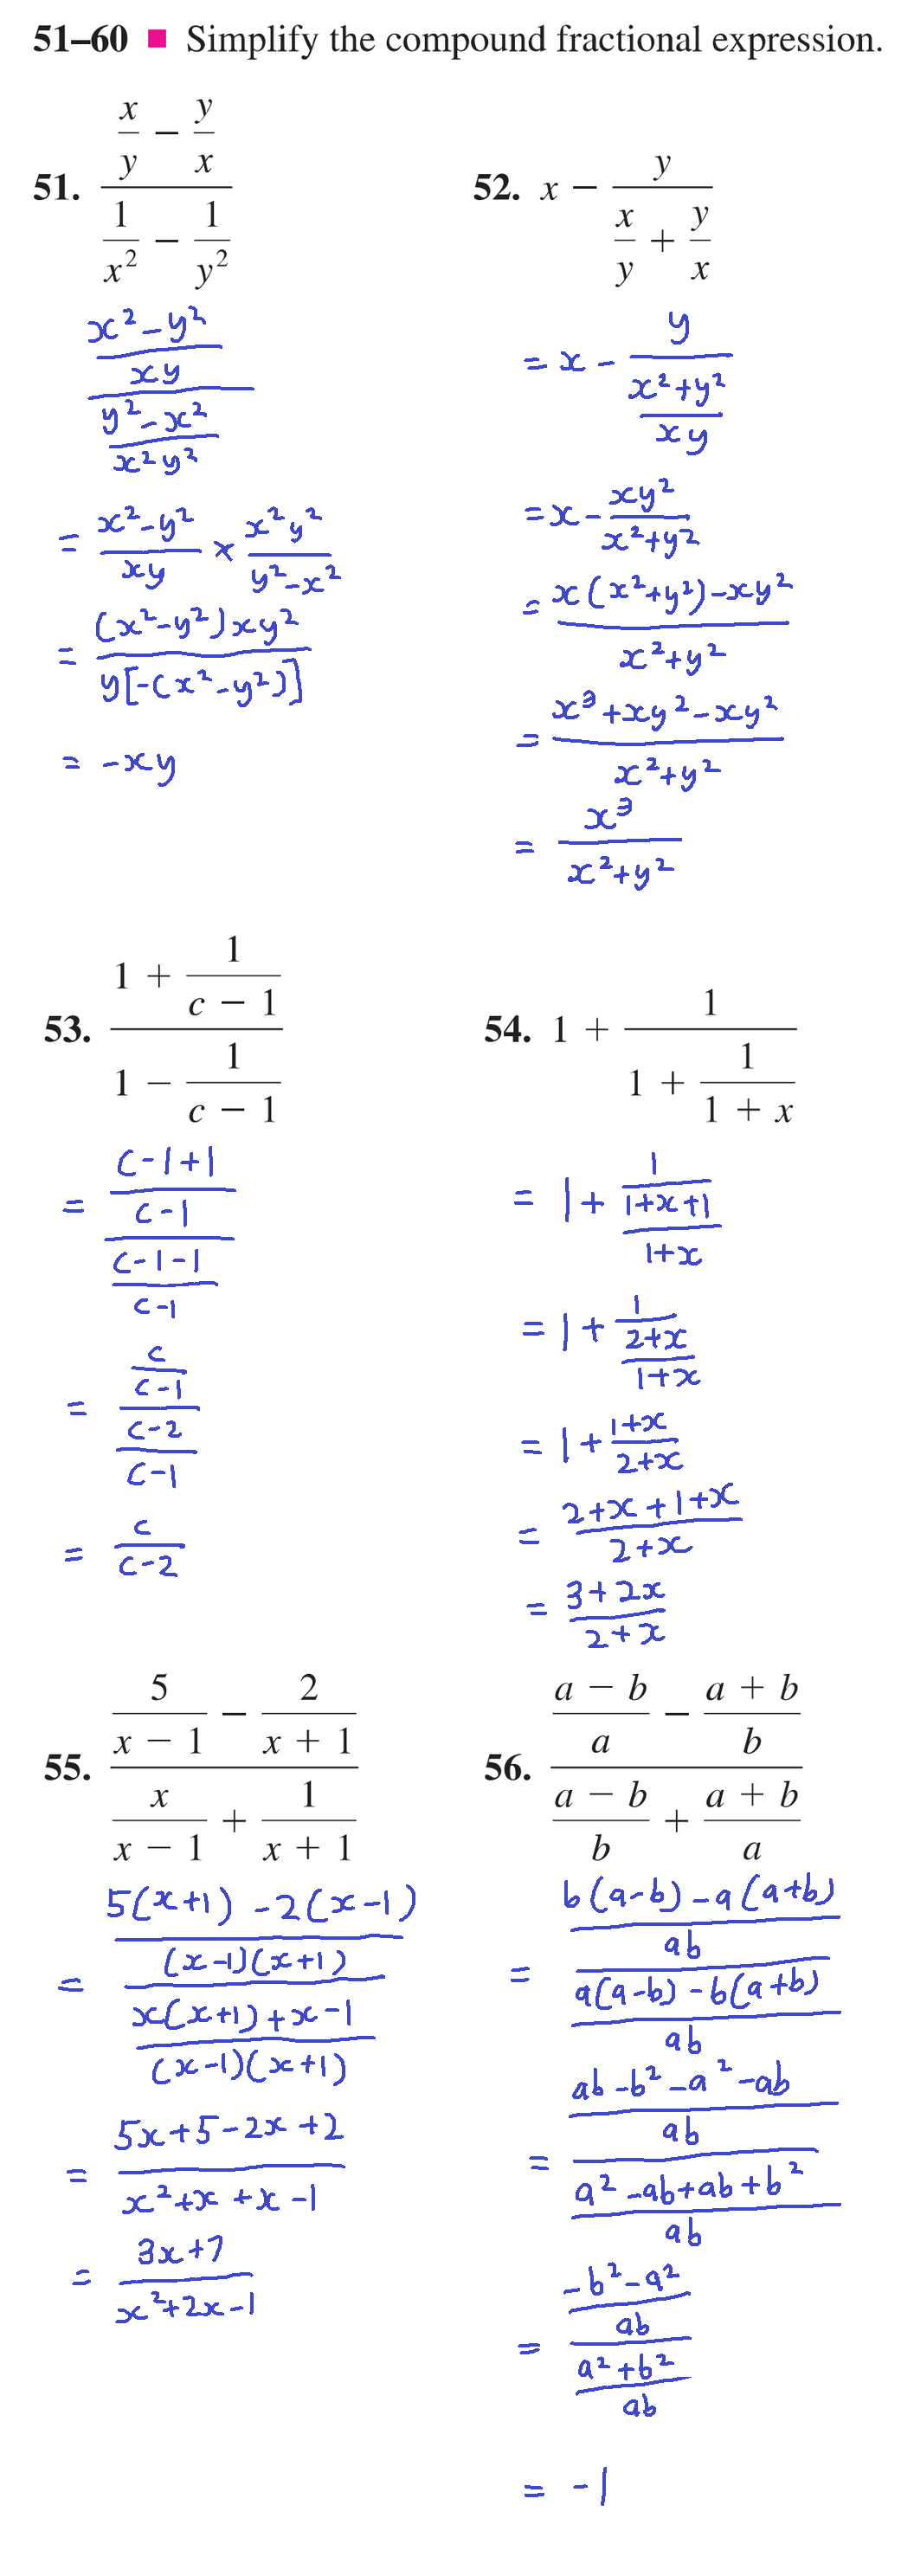 51–60 ■ Simplify the compound fractional expression.
51. (x/y − y/x) / (1/x² − 1/y²)
((x²−y²)/(xy)) / ((y²−x²)/(x²y²))
= (x²−y²)/(xy) × (x²y²)/(y²−x²)
= ((x²−y²)xy²) / (y[−(x²−y²)])
= −xy
52. x − y / (x/y + y/x)
= x − y / ((x²+y²)/(xy))
= x − (xy²)/(x²+y²)
= (x(x²+y²)−xy²) / (x²+y²)
= (x³+xy²−xy²) / (x²+y²)
= x³ / (x²+y²)
53. (1 + 1/(c − 1)) / (1 − 1/(c − 1))
= ((c−1+1)/(c−1)) / ((c−1−1)/(c−1))
= (c/(c−1)) / ((c−2)/(c−1))
= c/(c−2)
54. 1 + 1 / (1 + 1/(1 + x))
= 1 + 1 / ((1+x+1)/(1+x))
= 1 + 1 / ((2+x)/(1+x))
= 1 + (1+x)/(2+x)
= (2+x+1+x)/(2+x)
= (3+2x)/(2+x)
55. (5/(x − 1) − 2/(x + 1)) / (x/(x − 1) + 1/(x + 1))
= ((5(x+1) −2(x−1))/((x−1)(x+1))) / ((x(x+1)+x−1)/((x−1)(x+1)))
= (5x+5−2x+2) / (x²+x+x−1)
= (3x+7) / (x²+2x−1)
56. ((a − b)/a − (a + b)/b) / ((a − b)/b + (a + b)/a)
= ((b(a−b)−a(a+b))/(ab)) / ((a(a−b)−b(a+b))/(ab))
= ((ab−b²−a²−ab)/(ab)) / ((a²−ab+ab+b²)/(ab))
= ((−b²−a²)/(ab)) / ((a²+b²)/(ab))
= −1